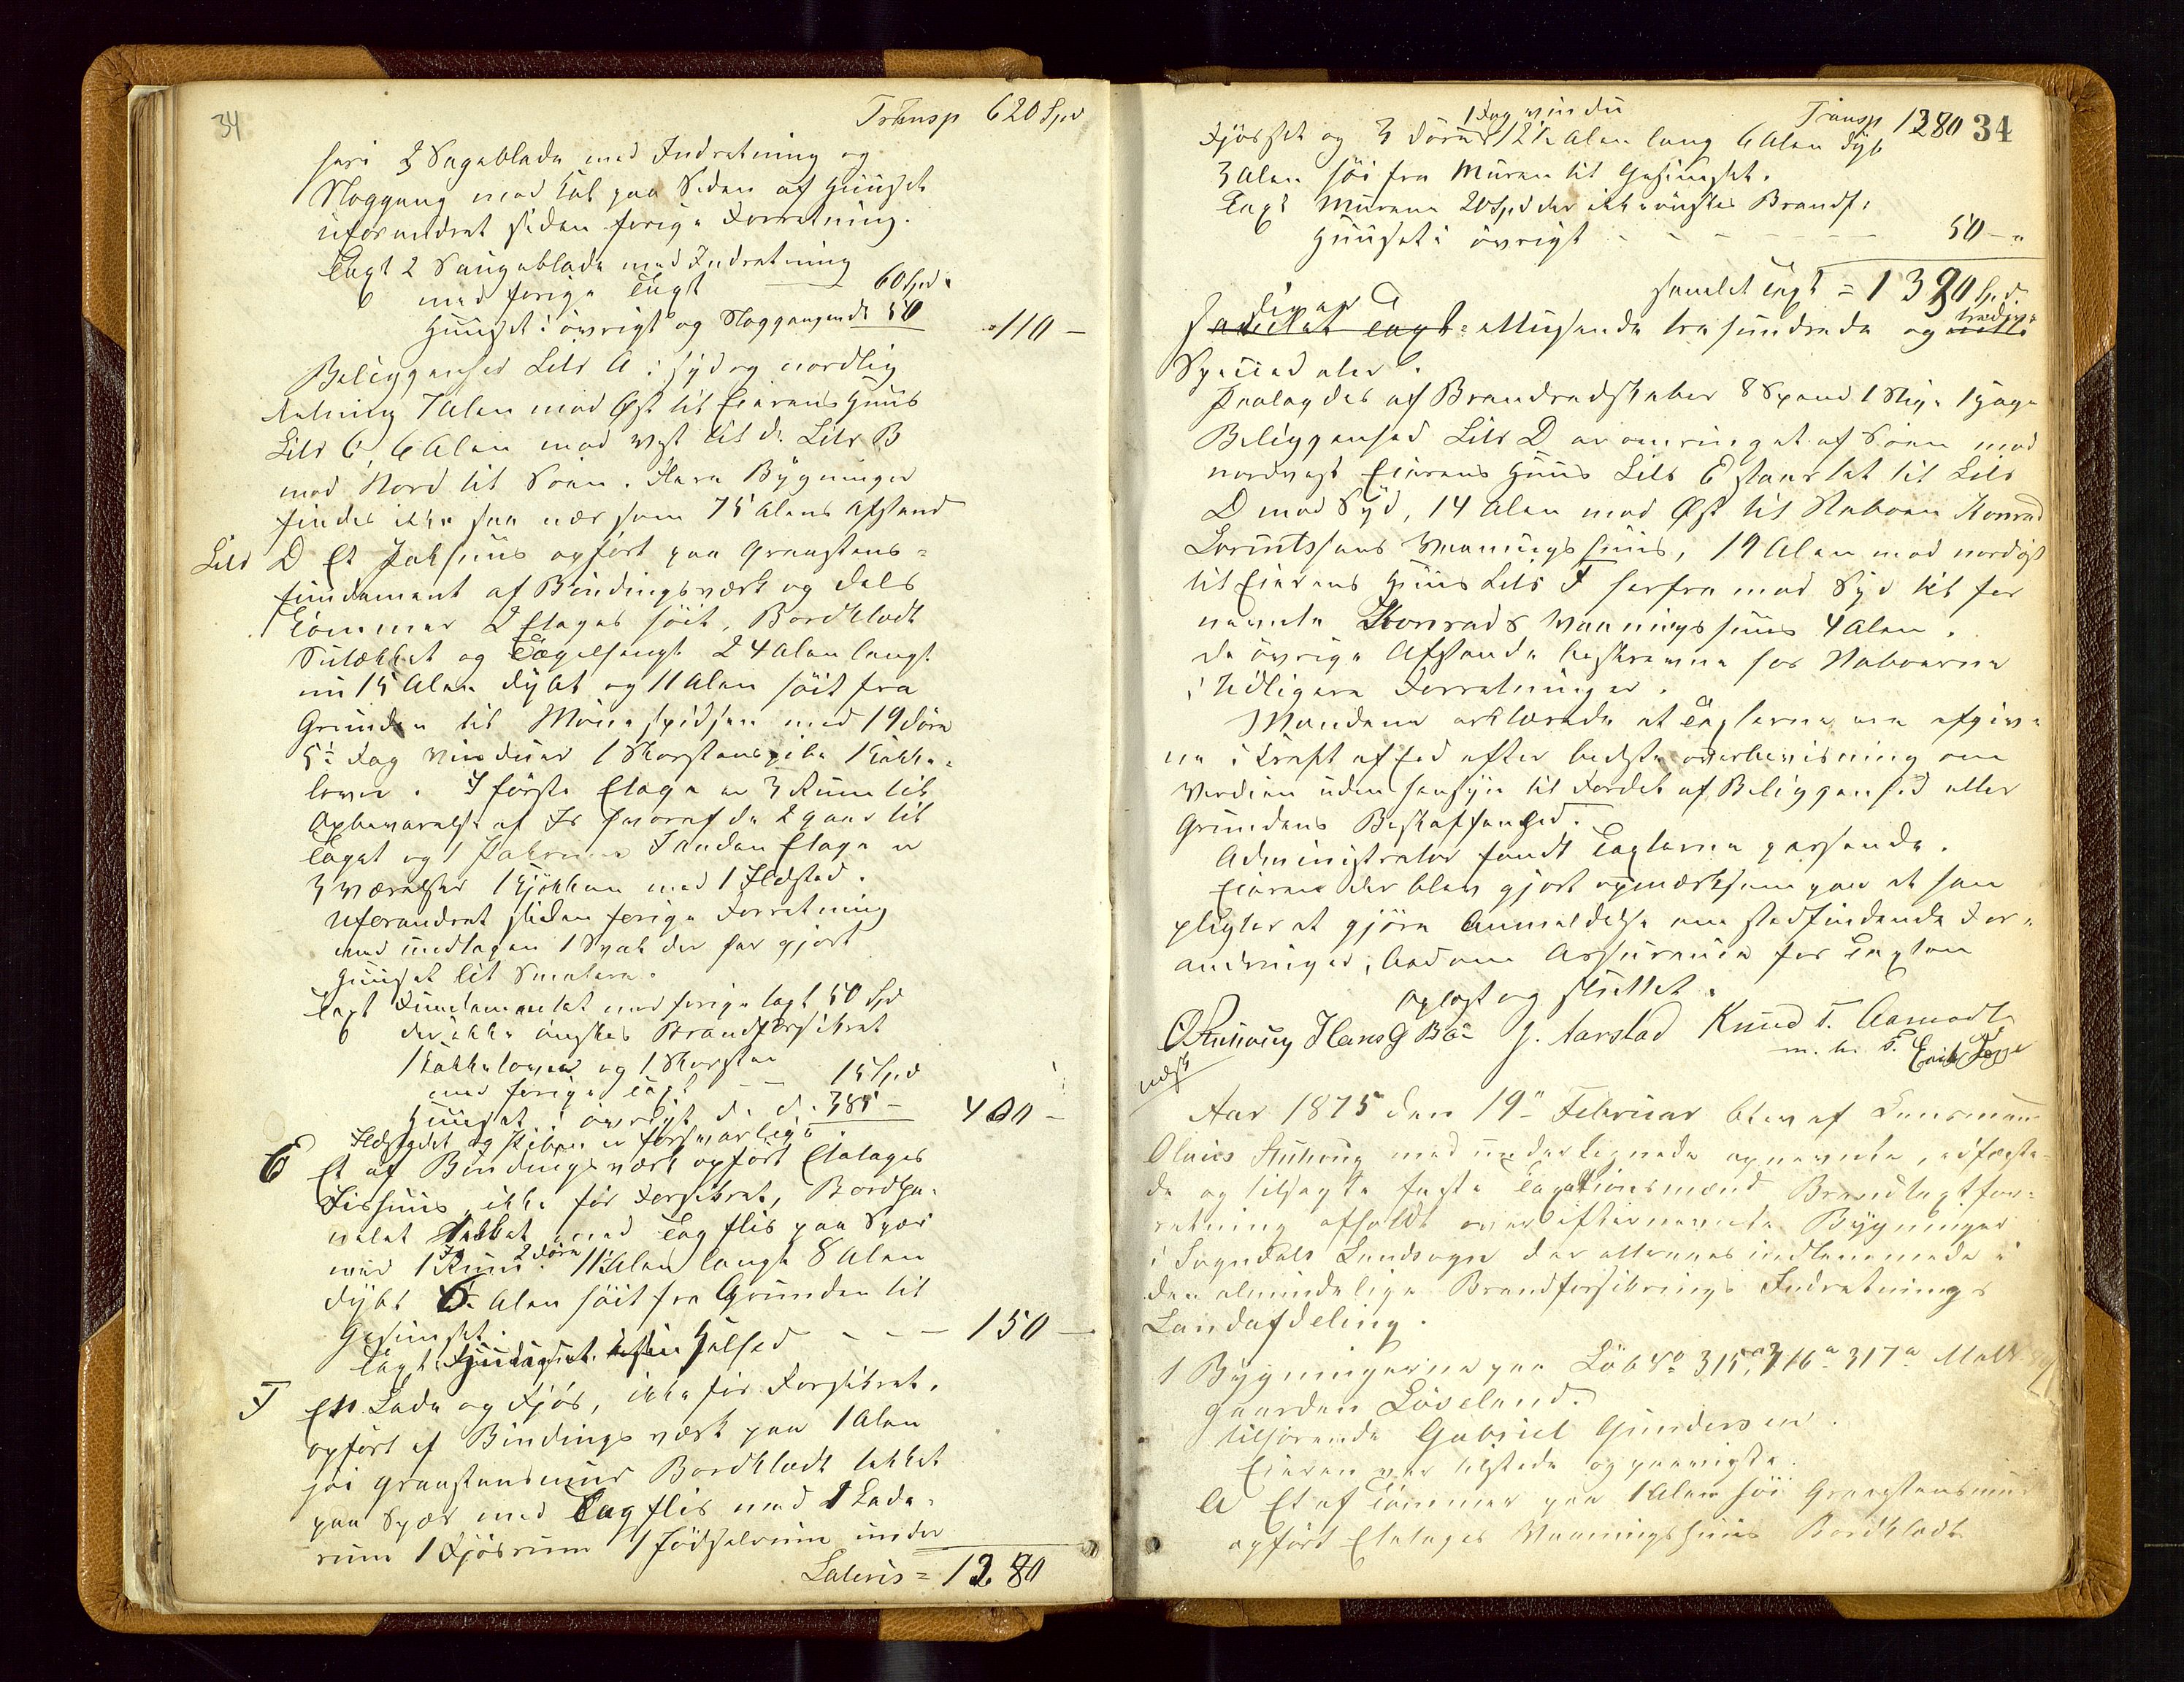 34
Transp 620 Spd
heri 2 Sageblade med Indretning og
Noggang med Tab paa Siden af Huuset
uforandret siden forige Forretning.
Taxt 2 Saugeblade med Indretning
med forige Taxt 60 Spd
Huuset i øvrigt og Noggangen ds 50 110 —
Beliggenhed Litr A i syd og nordlig
Retning 7 Alen mod Øst til Eierens Huus
Litr C, 6 Alen mod Vest til do Litr B
mod Nord til Søen. Flere Bygninger
findes ikke saa nær som 75 Alens Afstand
Litr D Et Pakhuus opført paa Graastens-
fundament af Bindingsværk og dels
Tømmer 2 Etages høit, Bordklædt
Sutækket og Tægelhængt 24 Alen langt
nu 15 Alen dybt og 11 Alen høit fra
Grunden til Mønespidsen med 19 døre
5 Fag Vinduer 1 Skorstenspibe 1 Kakke-
lovn. I første Etage er 3 Rum til
Opbevarelse af Is hvoraf de 2 gaar til
Taget og 1 Pakrum I anden Etage er
3 Værelser 1 Kjøkken med 1 Ildsted.
Uforandret siden forige Forretning
med undtagen 1 Sval der har gjort
Huuset lit Smalere.
Taxt Fundamentet med forige taxt 50 Spd
der ikke ønskes Brandforsikret
1 Kakkelovn og 1 Skorsten
med forige Taxt — 15 Spd
Huuset i øvrigt d. d. 385 — 400 —
Ildstedet og Piben er forsvarlig
E Et af Bindingsværk opført Etetages
Iishuus, ikke før Forsikret, Bordpa-
nelet Tækket med Tagflis paa Spær
med 1 Is Rum 2 døre 11 Alen langt 8 Alen
dybt 6 Alen høit fra Grunden til
Gesimset.
Taxt Huuset i sin Helhed — — — 150 —
F En Lade og Fjøs, ikke før Forsikret.
opført af Bindingsværk paa 1 Alen
høi Graastensmur Bordklædt tækket
paa Spær med Tagflis med 1 Lade-
rum 1 Fjøsrum 1 Fødselrum under
Lateris = 1280
1 Fag vindu Transp 1280 34
Fjøsset og 3 døre 12 ½ Alen lang 6 Alen dyb
3 Alen høi fra Muren til Gesimset.
Taxt Murene 20 Spd der ikke ønskes Brandf.
Huuset i øvrigt — — — — 50 — "
samlet Taxt = 1330 Spd.
siger
samlet Taxt = ettusende trehundrede og tredive
Speciedaler.
Paalagdes af Brandredskaber 8 Spand 1 Stige 1 Hage
Beliggenhed Litr D er omringet af Søen mod
nordvest Eierens Huus Litr E staar tæt til Litr
D mod Syd, 14 Alen mod Øst til Naboen Konrad
Lorentssens Vaaningshuus, 19 Alen mod nordøst
til Eierens Huus Litr F herfra mod Syd til før
nævnte Konrads Vaaningshuus 4 Alen.
De øvrige Afstande beskrevne hos Naboerne
i tidligere Forretninger.
Mændene erklærede at Taxterne ere afgiv-
ne i Kraft af Eed efter bedste overbevisning om
Værdien uden hensyn til Fordel af Beliggenhed eller
Grundens Beskaffenhed.
Administrator fandt Taxterne passende.
Eieren der blev gjort opmærksom paa at han
pligter at gjøre Anmeldelse om stedfindende For-
andringer, bad om Assurance for Taxten
Oplæst og sluttet.
O Stuhoug Hans G Bøe J. Aarstad Knud T. Aamodt
m. h. P.
Aar 1875 den 19" Februar blev af Lensmann
Olaus Stuhoug med undertegnede opnævnte, edfæste-
de og tilsagte faste Taxationsmænd Brandtaxtfor-
retning afholdt over efternævnte Bygninger
i Sogndals Landsogn der atterønes indlemmede i
den almindelige Brandforsikrings Indretnings
Landafdeling.
1 Bygningerne paa Løb No 315a, 316a 317a Matr
gaarden Løveland.
tilhørende Gabriel Gundersen.
Eieren var tilstede og paaviste.
A Et af Tømmer paa 1 Alen høi Graastensmur
opført Etetages Vaaningshuus Bordklædt